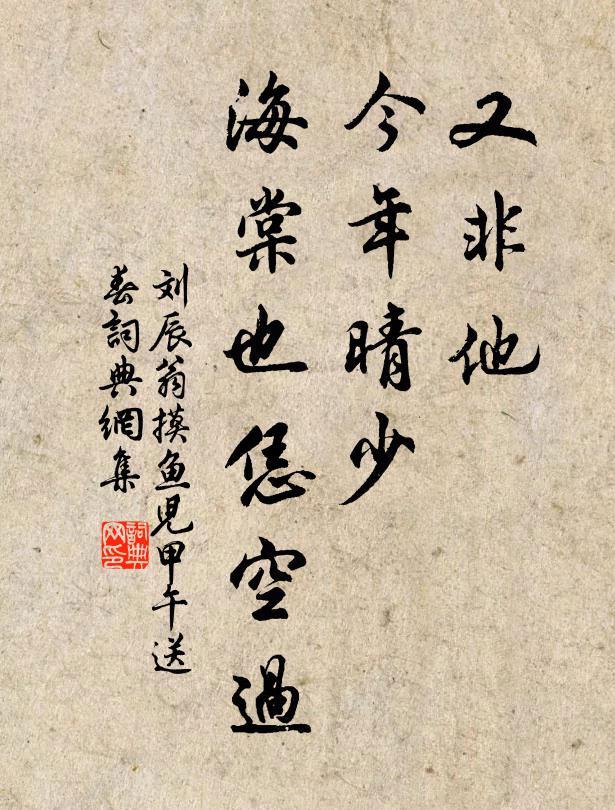 又非他
今年晴少
海棠也恁空過
刘辰翁摸鱼儿甲午送
春詞典網集
詞典网印